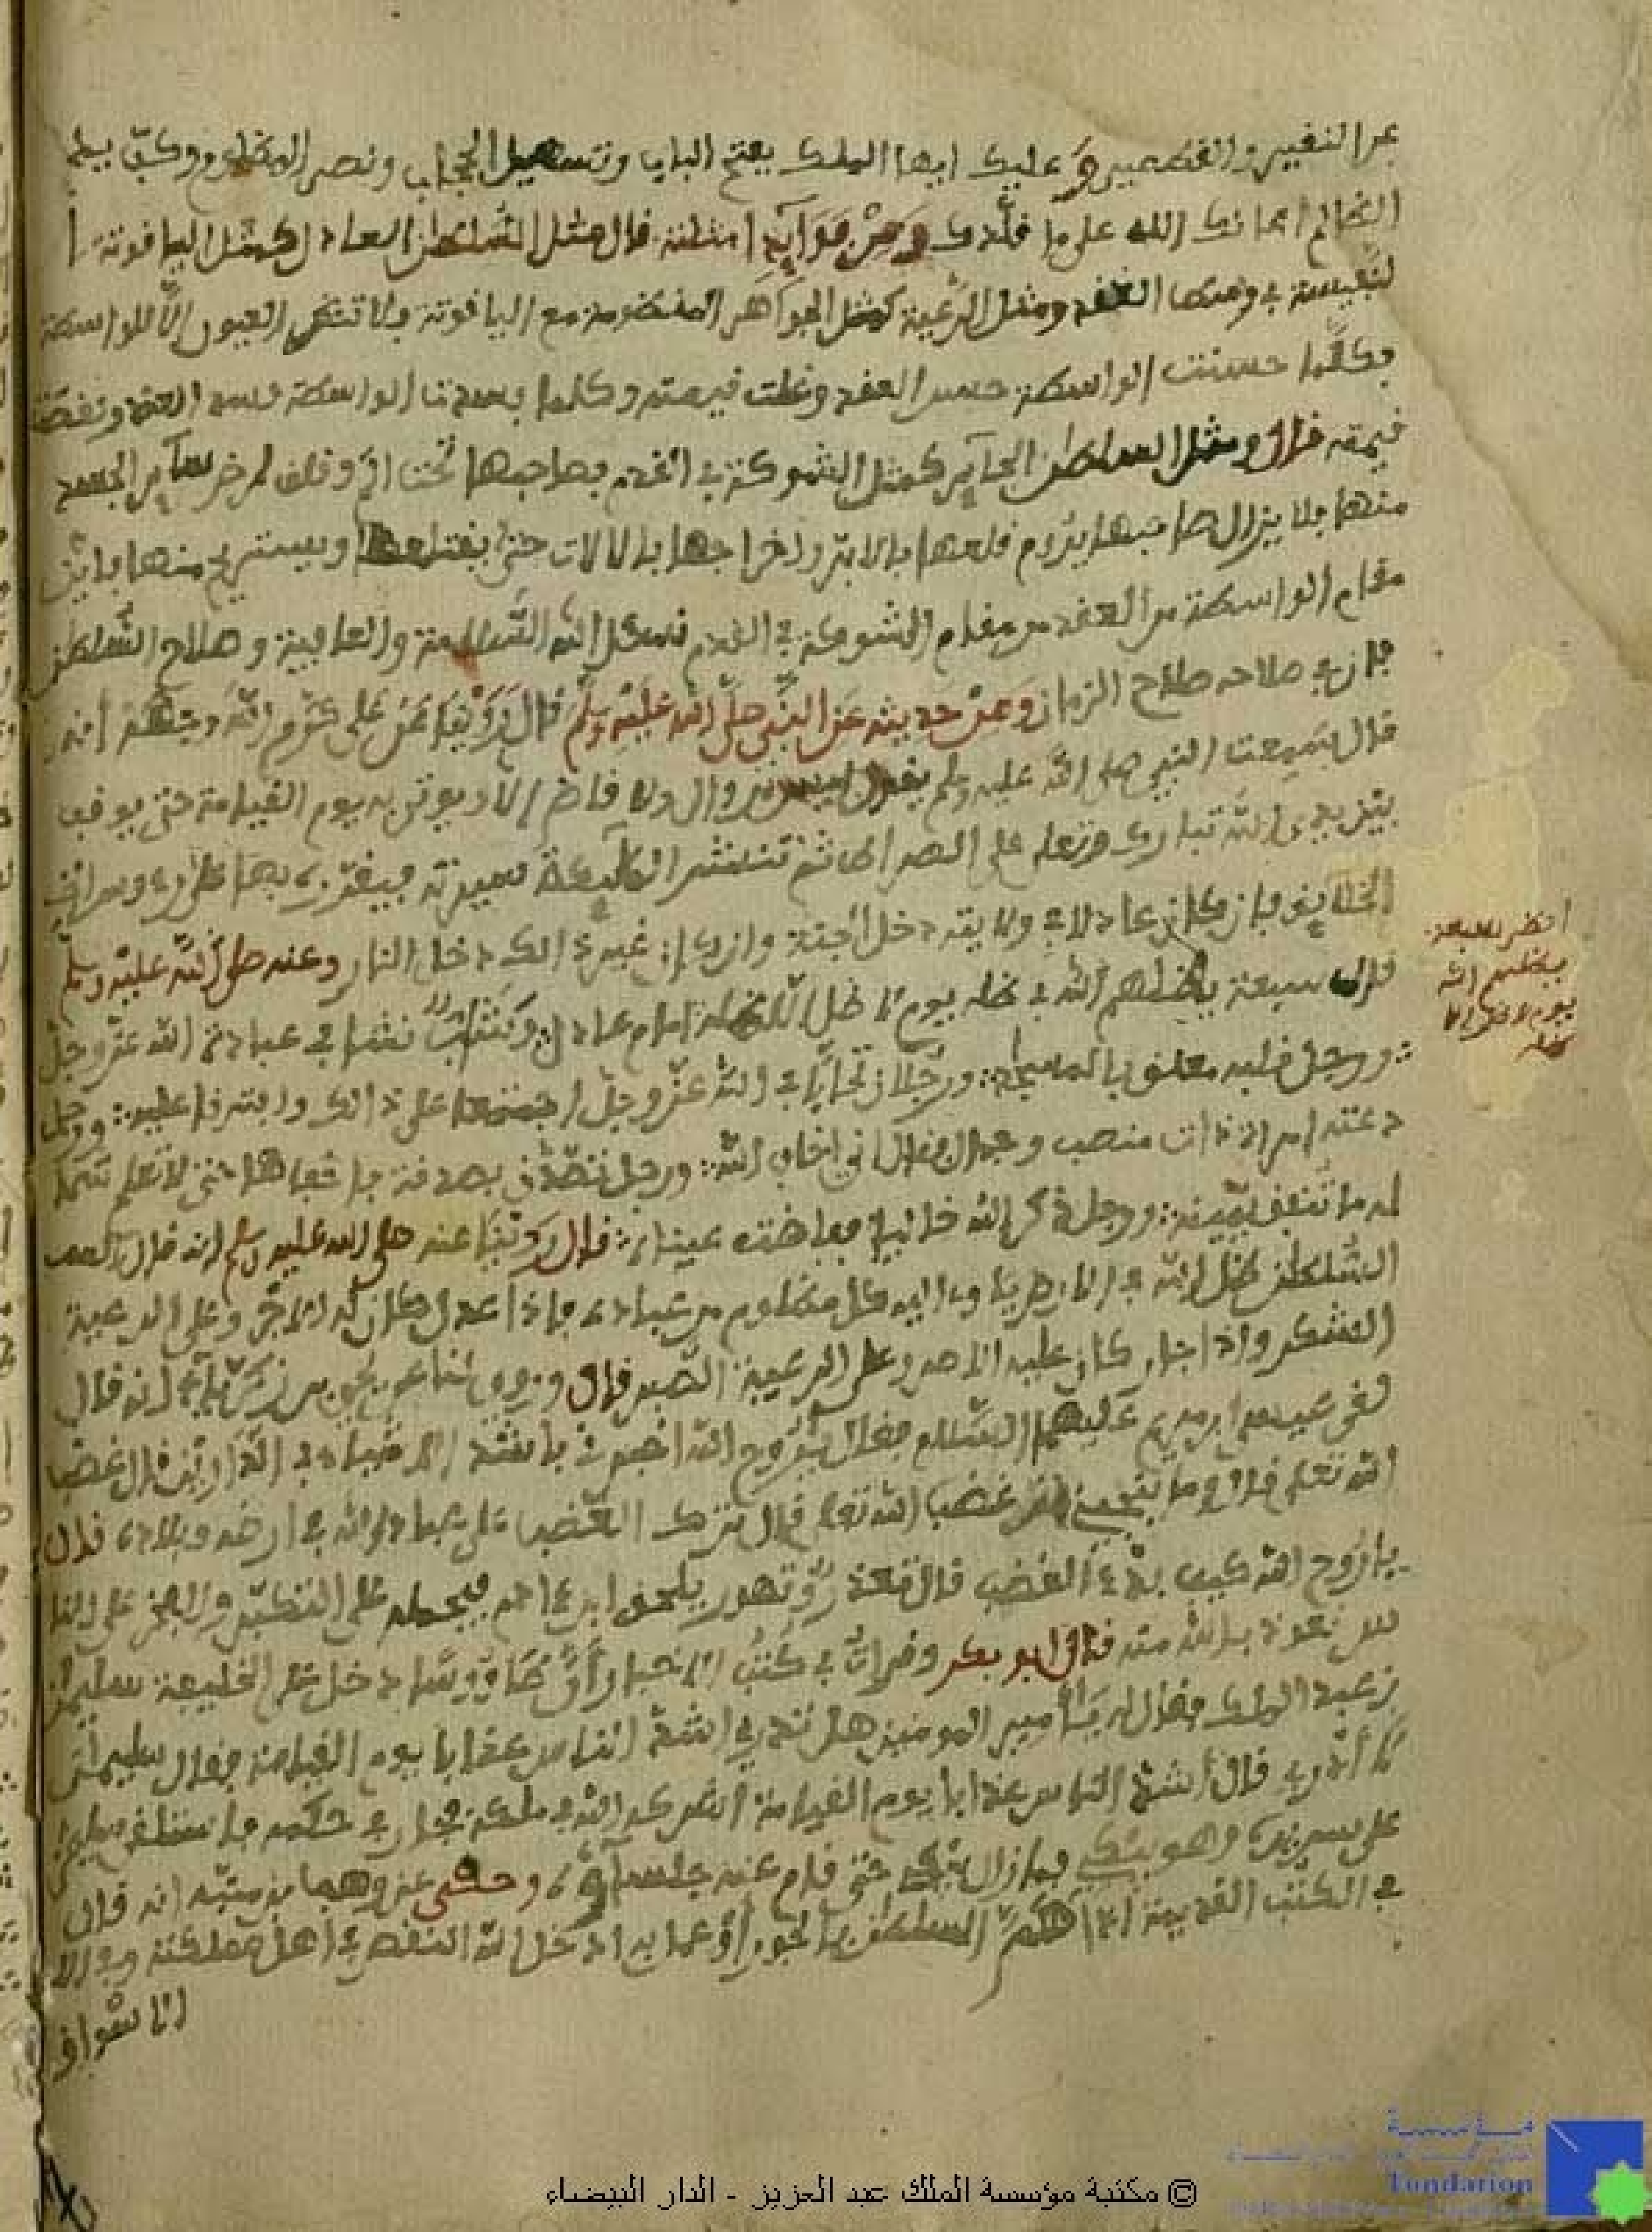 عن النفير والقطمير وعليك ايها الملك بفتح الباب وتسهيل الحجاب ونصر المظلوم وكف يد
الظالم اعانك الله على ما قلدك ومن فوايده امثلته قال مثل السلطن العادل كمثل اليافوتة ا
لنفيسة في وسط العقد ومثل الرعية كمثل الجواهر المنظومة مع اليافوتة ولا تنظر العيون الا للواسطة
فكلما حسنت الواسطة حسن العقد وغلت قيمته وكلما فسدت الواسطة فسد العقد ونقصت
قيمته قال ومثل السلطن الجاير كمثل الشوكة في القدم فصاحبها تحت الم وقلق لم خر ساير الجسد
منها فلا يزال صاحبها يروم قلعها بالابر واخراجها بالالات حتى يقتلعها ويستريح منها فاين
مقام الواسطة من العقد من مقام الشوكة في القدم نسئل الله السلامة والعافية وصلاح السلطن
فان في صلاحه صلاح الزمان ومن حديثه عن النبي صلى الله عليه وسلم قال روينا عن علي كرم الله وجهه انه
قال سمعت النبي صلى الله عليه وسلم يقول ليس من وال ولا قاض الا ويوتى به يوم القيامة حتى يوقف
بين يدي الله تبارك وتعلى على الصراط ثم تنشر الملايكة سيرته فيقرءونها على رءوس
الخلايق فان كان عادلا دخل الجنة وان كان غير ذالك دخل النار وعنه صلى الله عليه وسلم
قال سبعة يظلهم الله في ظله يوم لا ظل الا ظله امام عادل وشاب نشا في عبادة الله عز وجل
ورجل قلبه معلق بالمسجد ورجلان تحابا في الله عز وجل اجتمعا على ذالك وافترقا عليه ورجل
دعته امراة ذات منصب وجمال فقال اني اخاف الله ورجل تصدق بصدقة فاخفاها حتى لا تعلم شما
له ما تنفق يمينه ورجل ذكر الله خاليا ففاضت عيناه قال وروينا عنه صلى الله عليه وسلم انه قال
السلطن ظل الله في الارض ياوي اليه كل مظلوم من عباده فاذا عدل كان له الاجر وعلى الرعية
الشكر واذا جار كان عليه الاصر وعلى الرعية الصبر قال وروي لنا عن يحيى بن زكرياء انه قال
لقي عيسى ابن مريم عليهم السلام فقال يا روح الله اخبرني باشد الاشياء في الدارين قال غضب
الله تعلى قال وما ينجيني من غضب الله تعلى قال ترك الغضب على عباد الله في ارضه وبلاده قال
يا روح الله كيف بدء الغضب قال تعزز وتهور يلحق ابن ءادم فيحمله على التكبر والفخر على النا
س نعوذ بالله منه قال ابو بكر وقرات في كتب الاخبار ان طاووسا دخل على الخليفة سليمان
بن عبد الملك فقال له يا امير المومنين هل تدري اشد الناس عذابا يوم القيامة فقال سليمان
لا ادري قال اشد الناس عذابا يوم القيامة من اشركه الله في ملكه فجار في حكمه فاستلقى سليمن
على سريره وهو يبكي فما زال يبكي حتى قام عنه جلساءه وحكى عن وهب بن منبه انه قال
في الكتب القديمة اذا هم السلطن بالجور او عمل به ادخل الله النقص في اهل مملكته في
الاسواق
انظر السبعة
يظلهم الله
يوم لا ظل الا
ظله
© مكتبة مؤسسة الملك عبد العزيز - الدار البيضاء
مؤسسة
Fondation